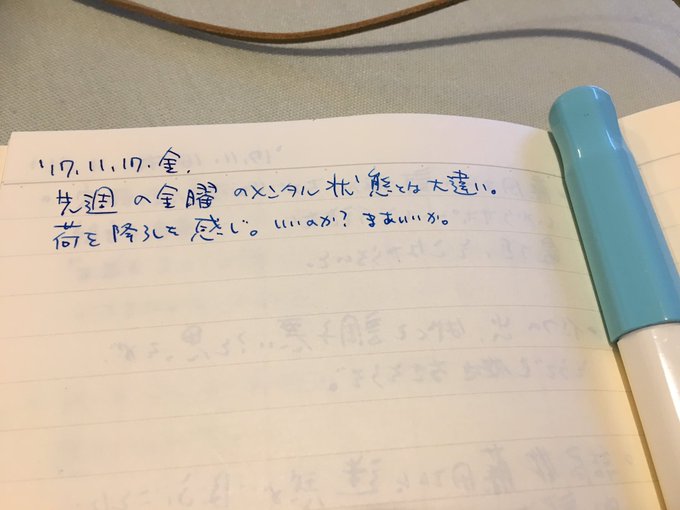 '17.11.17.金.
先週の金曜のメンタル状態とは大違い。
荷を降ろした感じ。いいのか？まあいいか。